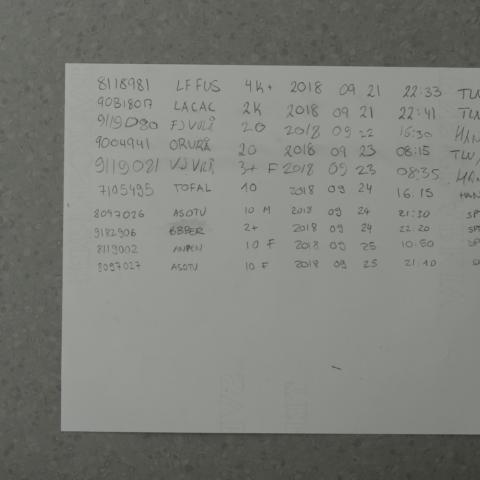 8118981 LFFUS 4K+ 2018 09 21 22:33 TLU
9031807 LACAC 2K 2018 09 21 22:41 TLU
9119080 FJVRÅ 20 2018 09 22 16:30 HAN
9004941 ORURÅ 20 2018 09 23 08:15 TLU
9119081 VJVRÅ 3+ F 2018 09 23 08:35 HAN
7105495 TOFAL 10 2018 09 24 16.15 HAN
8097026 ASOTU 10 M 2018 09 24 21:30 SP
9182906 BBPER 2+ 2018 09 24 22.20 SP
8119002 ANPEN 10 F 2018 09 25 10:50 SP
8097027 ASOTU 10 F 2018 09 25 21.10